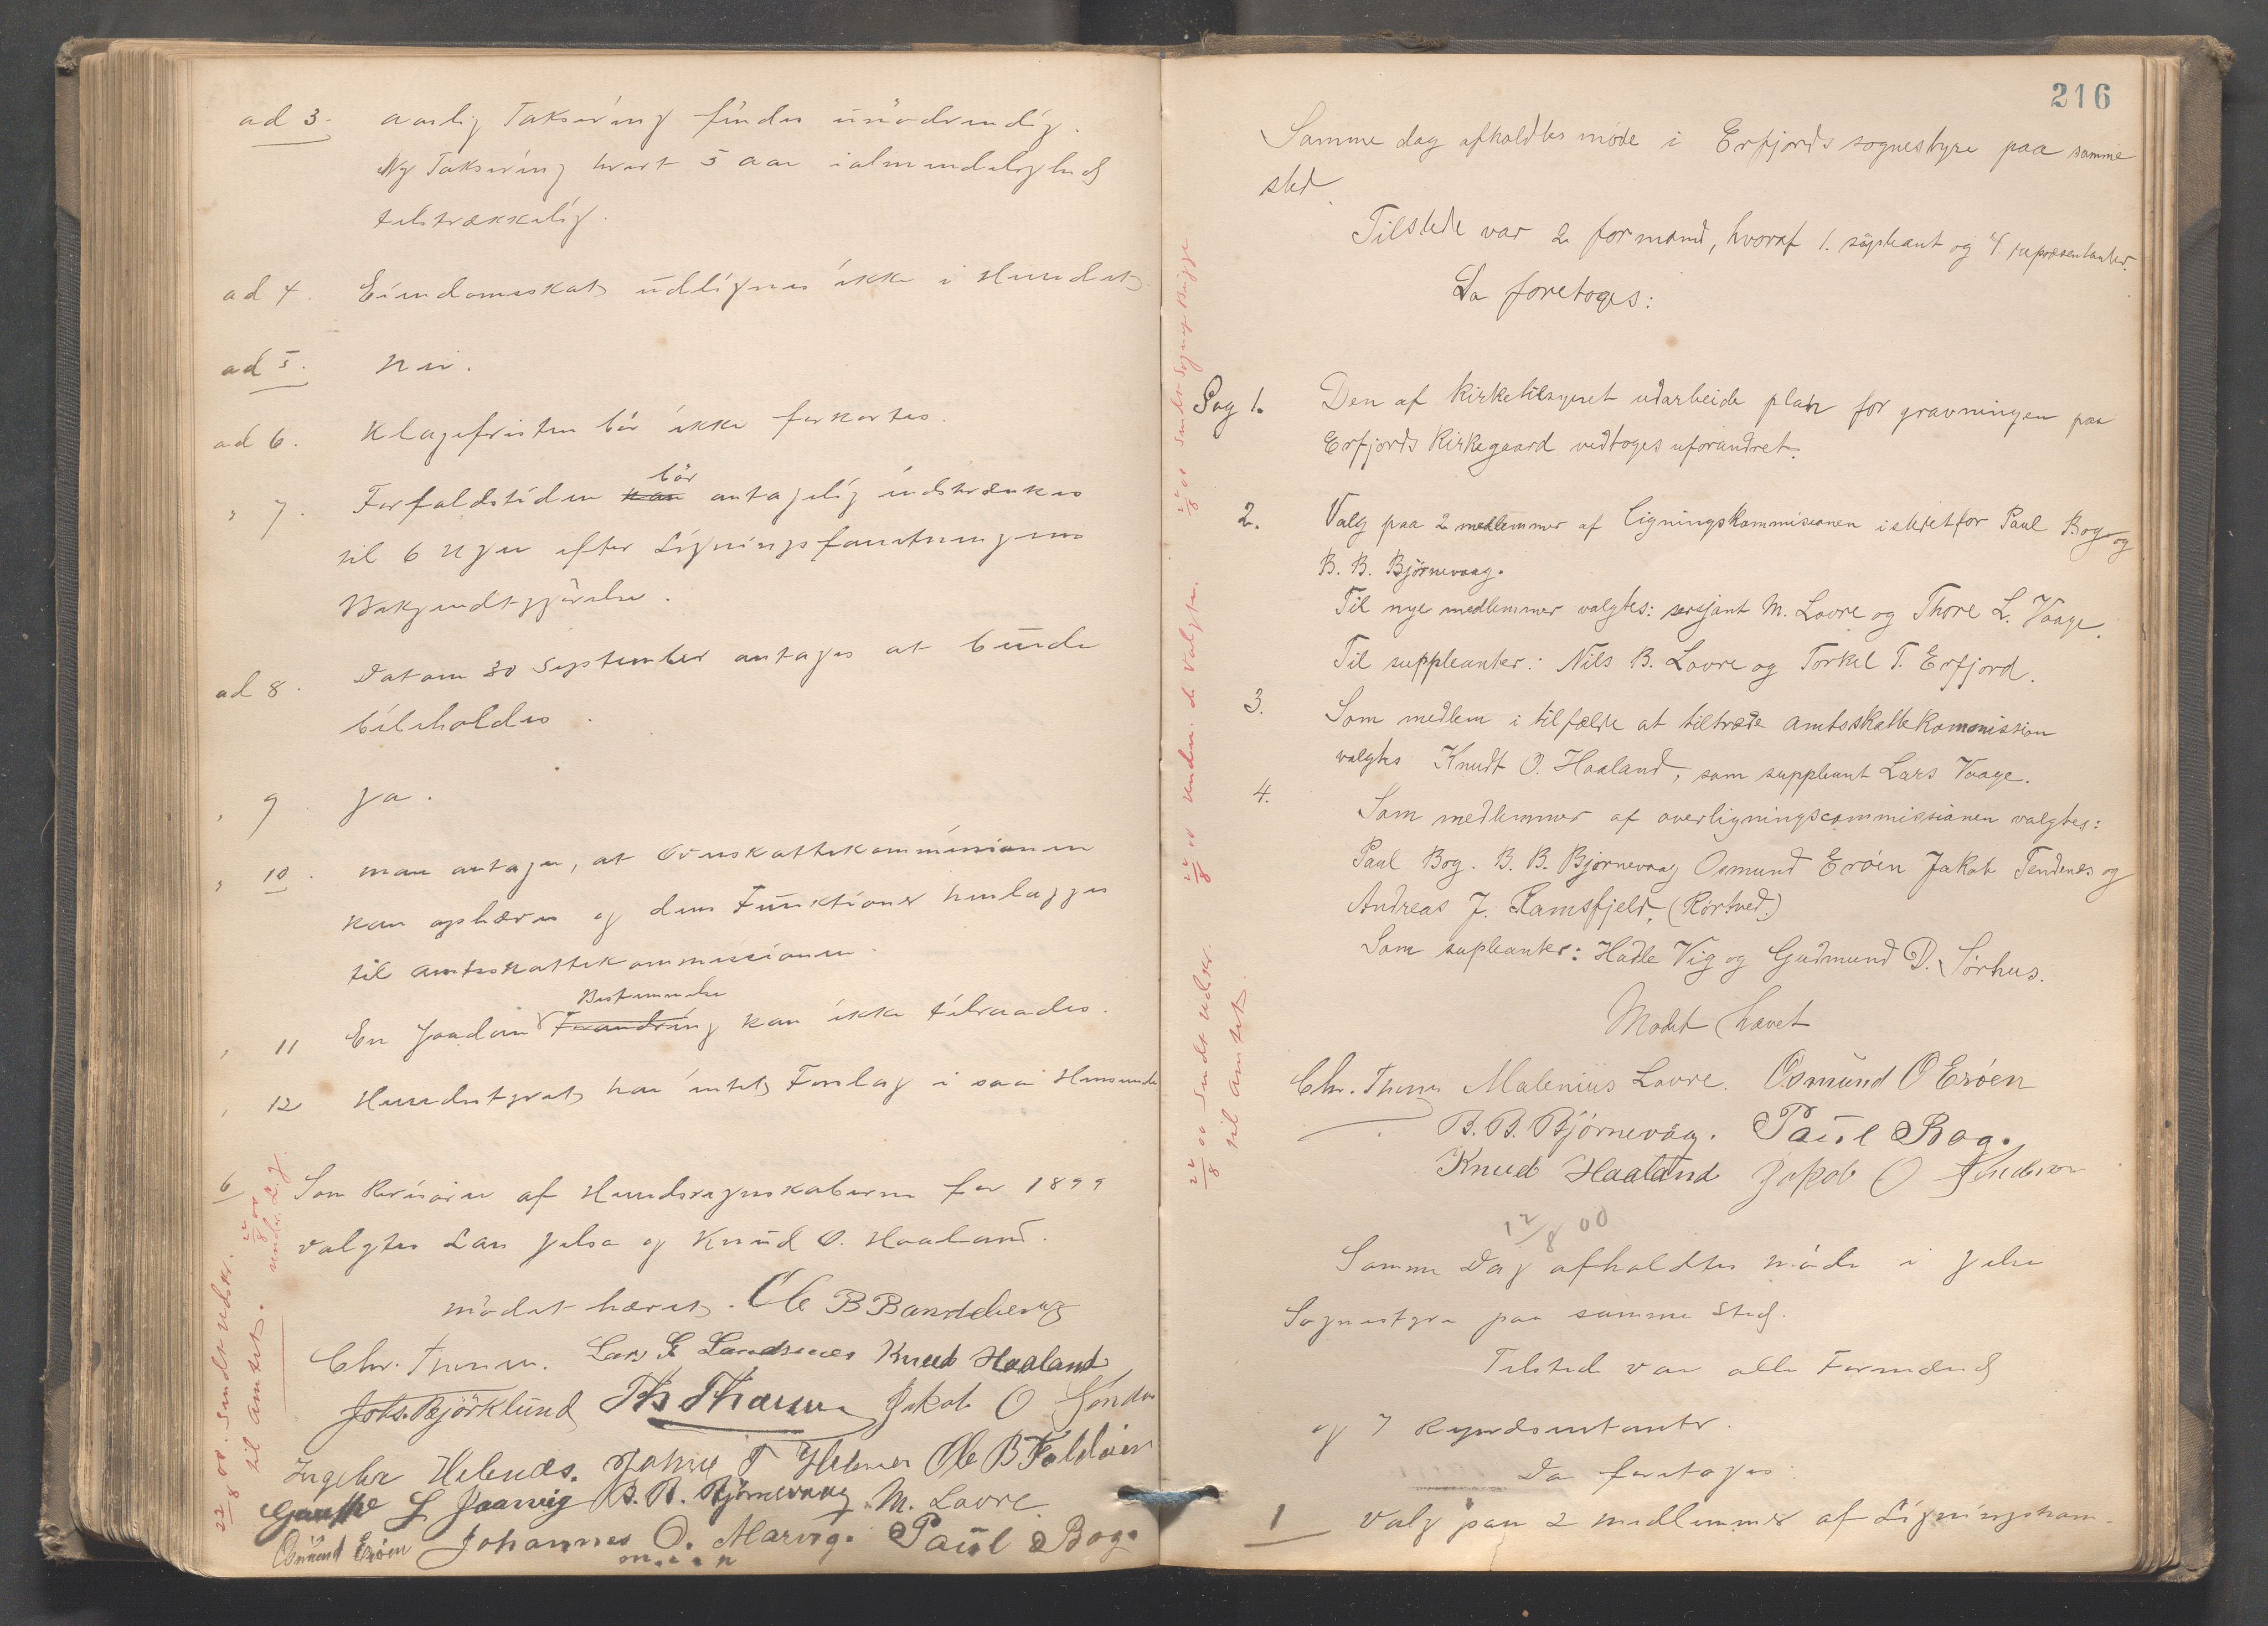 ad 3. aarlig Taksering findes unödvendig.
Ny Taksering hvert 5 aar i almindelighed
tilstrækkelig.
ad 4. Eiendomsskat udlignes ikke i Herredet.
ad 5. Nei.
ad 6. Klagefristen bör ikke forkortes.
" 7. Forfaldstiden kan bör antagelig indskrænkes
til 6 Uger efter Ligningsforretningens
Bekjendtgjörelse.
ad 8. Datoen 30 September antages at burde
bibeholdes.
" 9 Ja.
" 10. man antager, at Overskattekommissionen
kan ophæves og dens Funktioner henlægges
til amtsskattekommissionen.
" 11 En saadan Forandring Bestemmelse kan ikke tilraades.
" 12 Herredsstyret har intet Forslag i saa Henseende
6 Som Revisorer af Herredsregnskaberne for 1899
valgtes Lars Jelsa og Knud O. Haaland.
mödet hævet. Ole B Bandeberg
Chr. Thorsen. Lars G Landsnes Knud Haaland
Johs. Björklund Th Jakob O
Ingebr Helenæs. Ole B Foldöen
L Jaarvig B. B. Bjørnevaag M. Lovre
Osmund Erøen Johannes O. Marvig. Paul Bog.
22/8 00. Sendt Udskr.
til Amtet.
216
Samme dag afholdtes møde i Erfjords sognestyre paa samme
sted.
Tilstede var 2 formænd, hvoraf 1. supleant og 4 repræsentanter.
Da foretoges:
Sag 1. Den af kirketilsynet udarbeide plan for gravningen paa
Erfjords Kirkegaard vedtoges uforandret.
2. Valg paa 2 medlemmer af ligningskommisionen istedetfor Paul Bog og
B. B. Bjørnevaag.
Til nye medlemmer valgtes: sersjant M. Lovre og Thore L. Vaage.
Til suppleanter: Nils B. Lovre og Torkel T. Erfjord.
3. Som medlem i tilfælde at tiltræde amtsskattekommission
valgtes Knudt O. Haaland, som suppleant Lars Vaage.
4. Som medlemmer af overligningscommissionen valgtes:
Paul Bog. B. B. Bjørnevaag Osmund Erøen Jakob Tendenes og
Andreas J. Ramsfjeld, (Rørtved.)
Som supleanter: Hadle Vig og Gudmund D. Sørhus.
Mødet hævet
Chr. Thorsen Malenius Lovre. Osmund O Erøen
B. B. Bjørnevåg. Paul Bog.
Knud Haaland Jakob O
22/8 00 Sendt Udskr.
til Amtet.
12/8 00
Samme Dag afholdtes möde i Jelse
Sognestyre paa samme Sted.
Tilstede var alle Formænd
og 7 Repræsentanter.
Da foretoges:
1 Valg paa 2 medlemmer af Ligningskom-